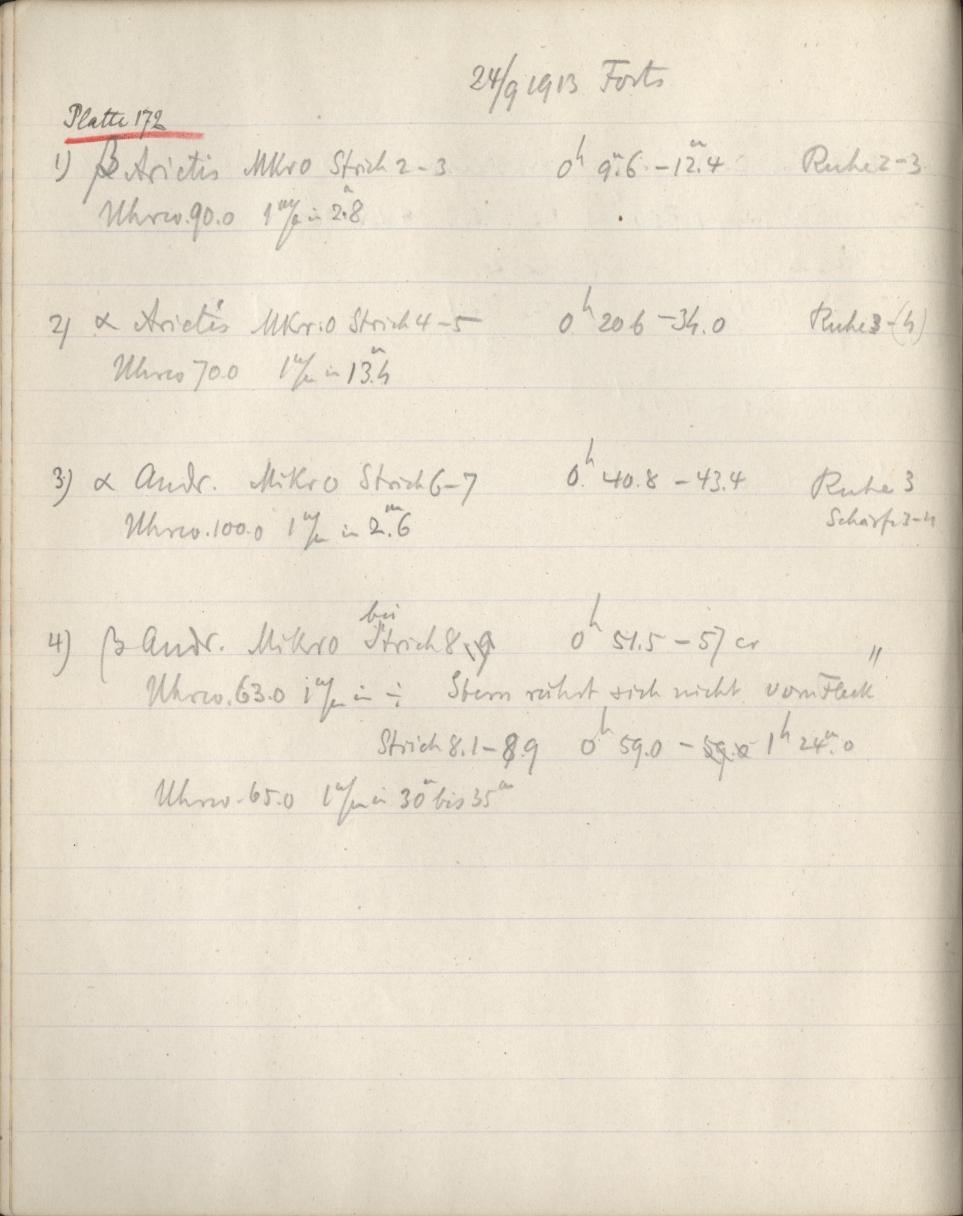 24/9 1913 Forts
Platte 172
1) β Arietis Mkro Strich 2-3 0h 9m.6 - 12m.4 Ruhe 2-3
Uhrw. 90.0 1m/m in 2m.8
2) α Arietis Mkr.o Strich 4-5 0h 20.6 - 34.0 Ruhe 3-(4)
Uhrw 70.0 1m/m in 13m.4
3) α Andr. Mikro Strich 6-7 0h 40.8 - 43.4 Ruhe 3
Schärfe 3-4
Uhrw. 100.0 1m/m in 2m.6
4) β Andr. Mikro bei Strich 8, 0h 51.5 - 57 cr "
Uhrw. 63.0 1m/m in ÷ Stern rührt sich nicht vom Fleck
Strich 8.1 - 8.9 0h 59.0 - 59.0 1h 24m.0
Uhrw. 65.0 1m/m in 30m bis 35m